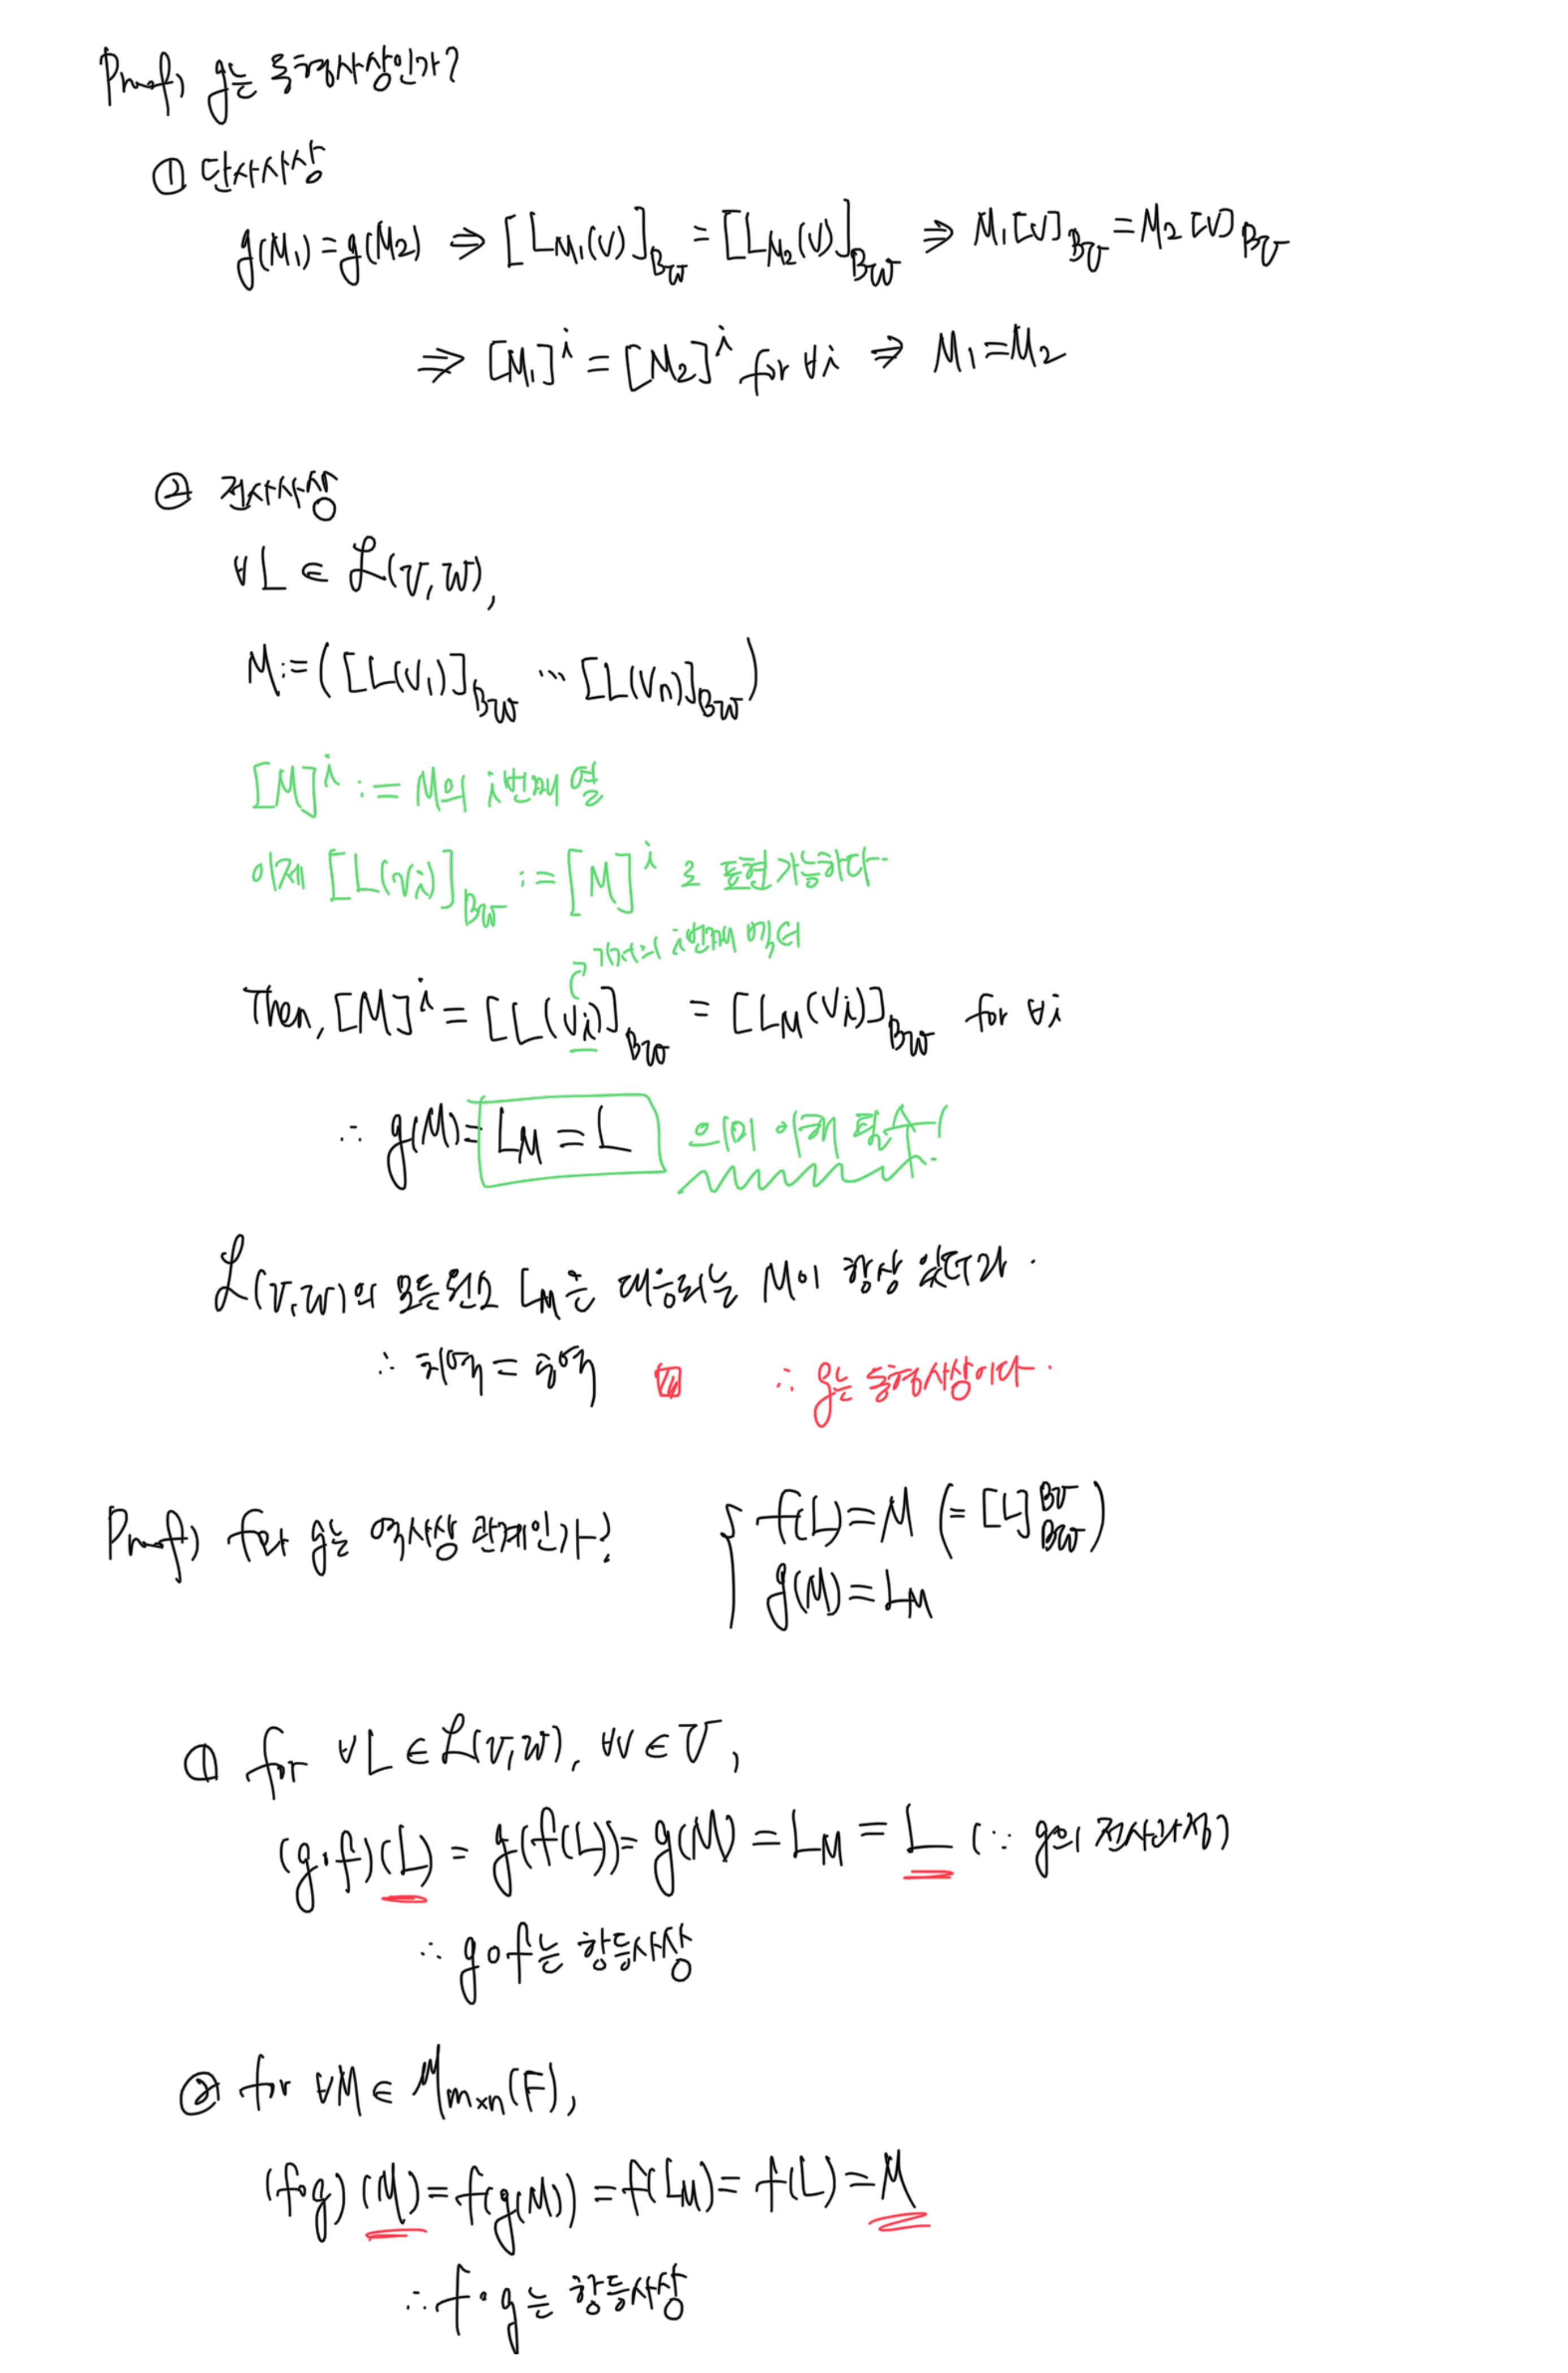 Proof) g는 동형사상인가?
① 단사사상
g(M₁)=g(M₂) ⇒ [L_{M₁}(v)]_{B_W} = [L_{M₂}(v)]_{B_W} ⇒ M₁[v]_{B_V} = M₂[v]_{B_V}
⇒ [M₁]^i = [M₂]^i for ∀i ⇒ M₁=M₂
② 전사사상
∀L ∈ ℒ(V,W),
M:=([L(v₁)]_{B_W} ⋯ [L(vₙ)]_{B_W})
[M]^i := M의 i번째 열
이제 [L(vi)]_{B_W} := [M]^i 로 표현 가능하다
기저의 i번째 벡터
Then, [M]^i = [L(vi)]_{B_W} = [L_M(vi)]_{B_W} for ∀i
∴ g(M)= L_M = L 의미 이해 필수!
ℒ(V,W)의 모든 원소 L_M은 대응되는 M이 항상 있더라.
∴ 치역 = 공역 ∴ g는 동형사상이다.
Proof) f와 g는 역사상 관계인가? { f(L)=M (=[L]^{B_V}_{B_W})
g(M)=L_M
① for ∀L ∈ ℒ(V,W), ∀v ∈ V,
(g∘f)(L) = g(f(L)) = g(M) = L_M = L (∵ g의 전사과정)
∴ g∘f는 항등사상
② for ∀M ∈ M_{m×n}(F),
(f∘g)(M) = f(g(M)) = f(L_M) = f(L) = M
∴ f∘g는 항등사상